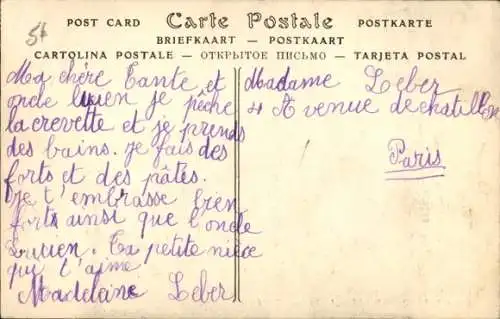 5f
POST CARD Carte Postale POSTKARTE
BRIEFKAART — POSTKAART
CARTOLINA POSTALE — ОТКРЫТОЕ ПИСЬМО — TARJETA POSTAL
Ma chère Tante et
oncle lucien je pêche
la crevette et je prends
des bains. je fais des
forts et des pâtés.
Je t'embrasse bien
forts ainsi que l'oncle
Lucien. Ta petite nièce
qui t'aime
Madeleine Leber
Madame Leber
4 Avenue de chatillon
Paris